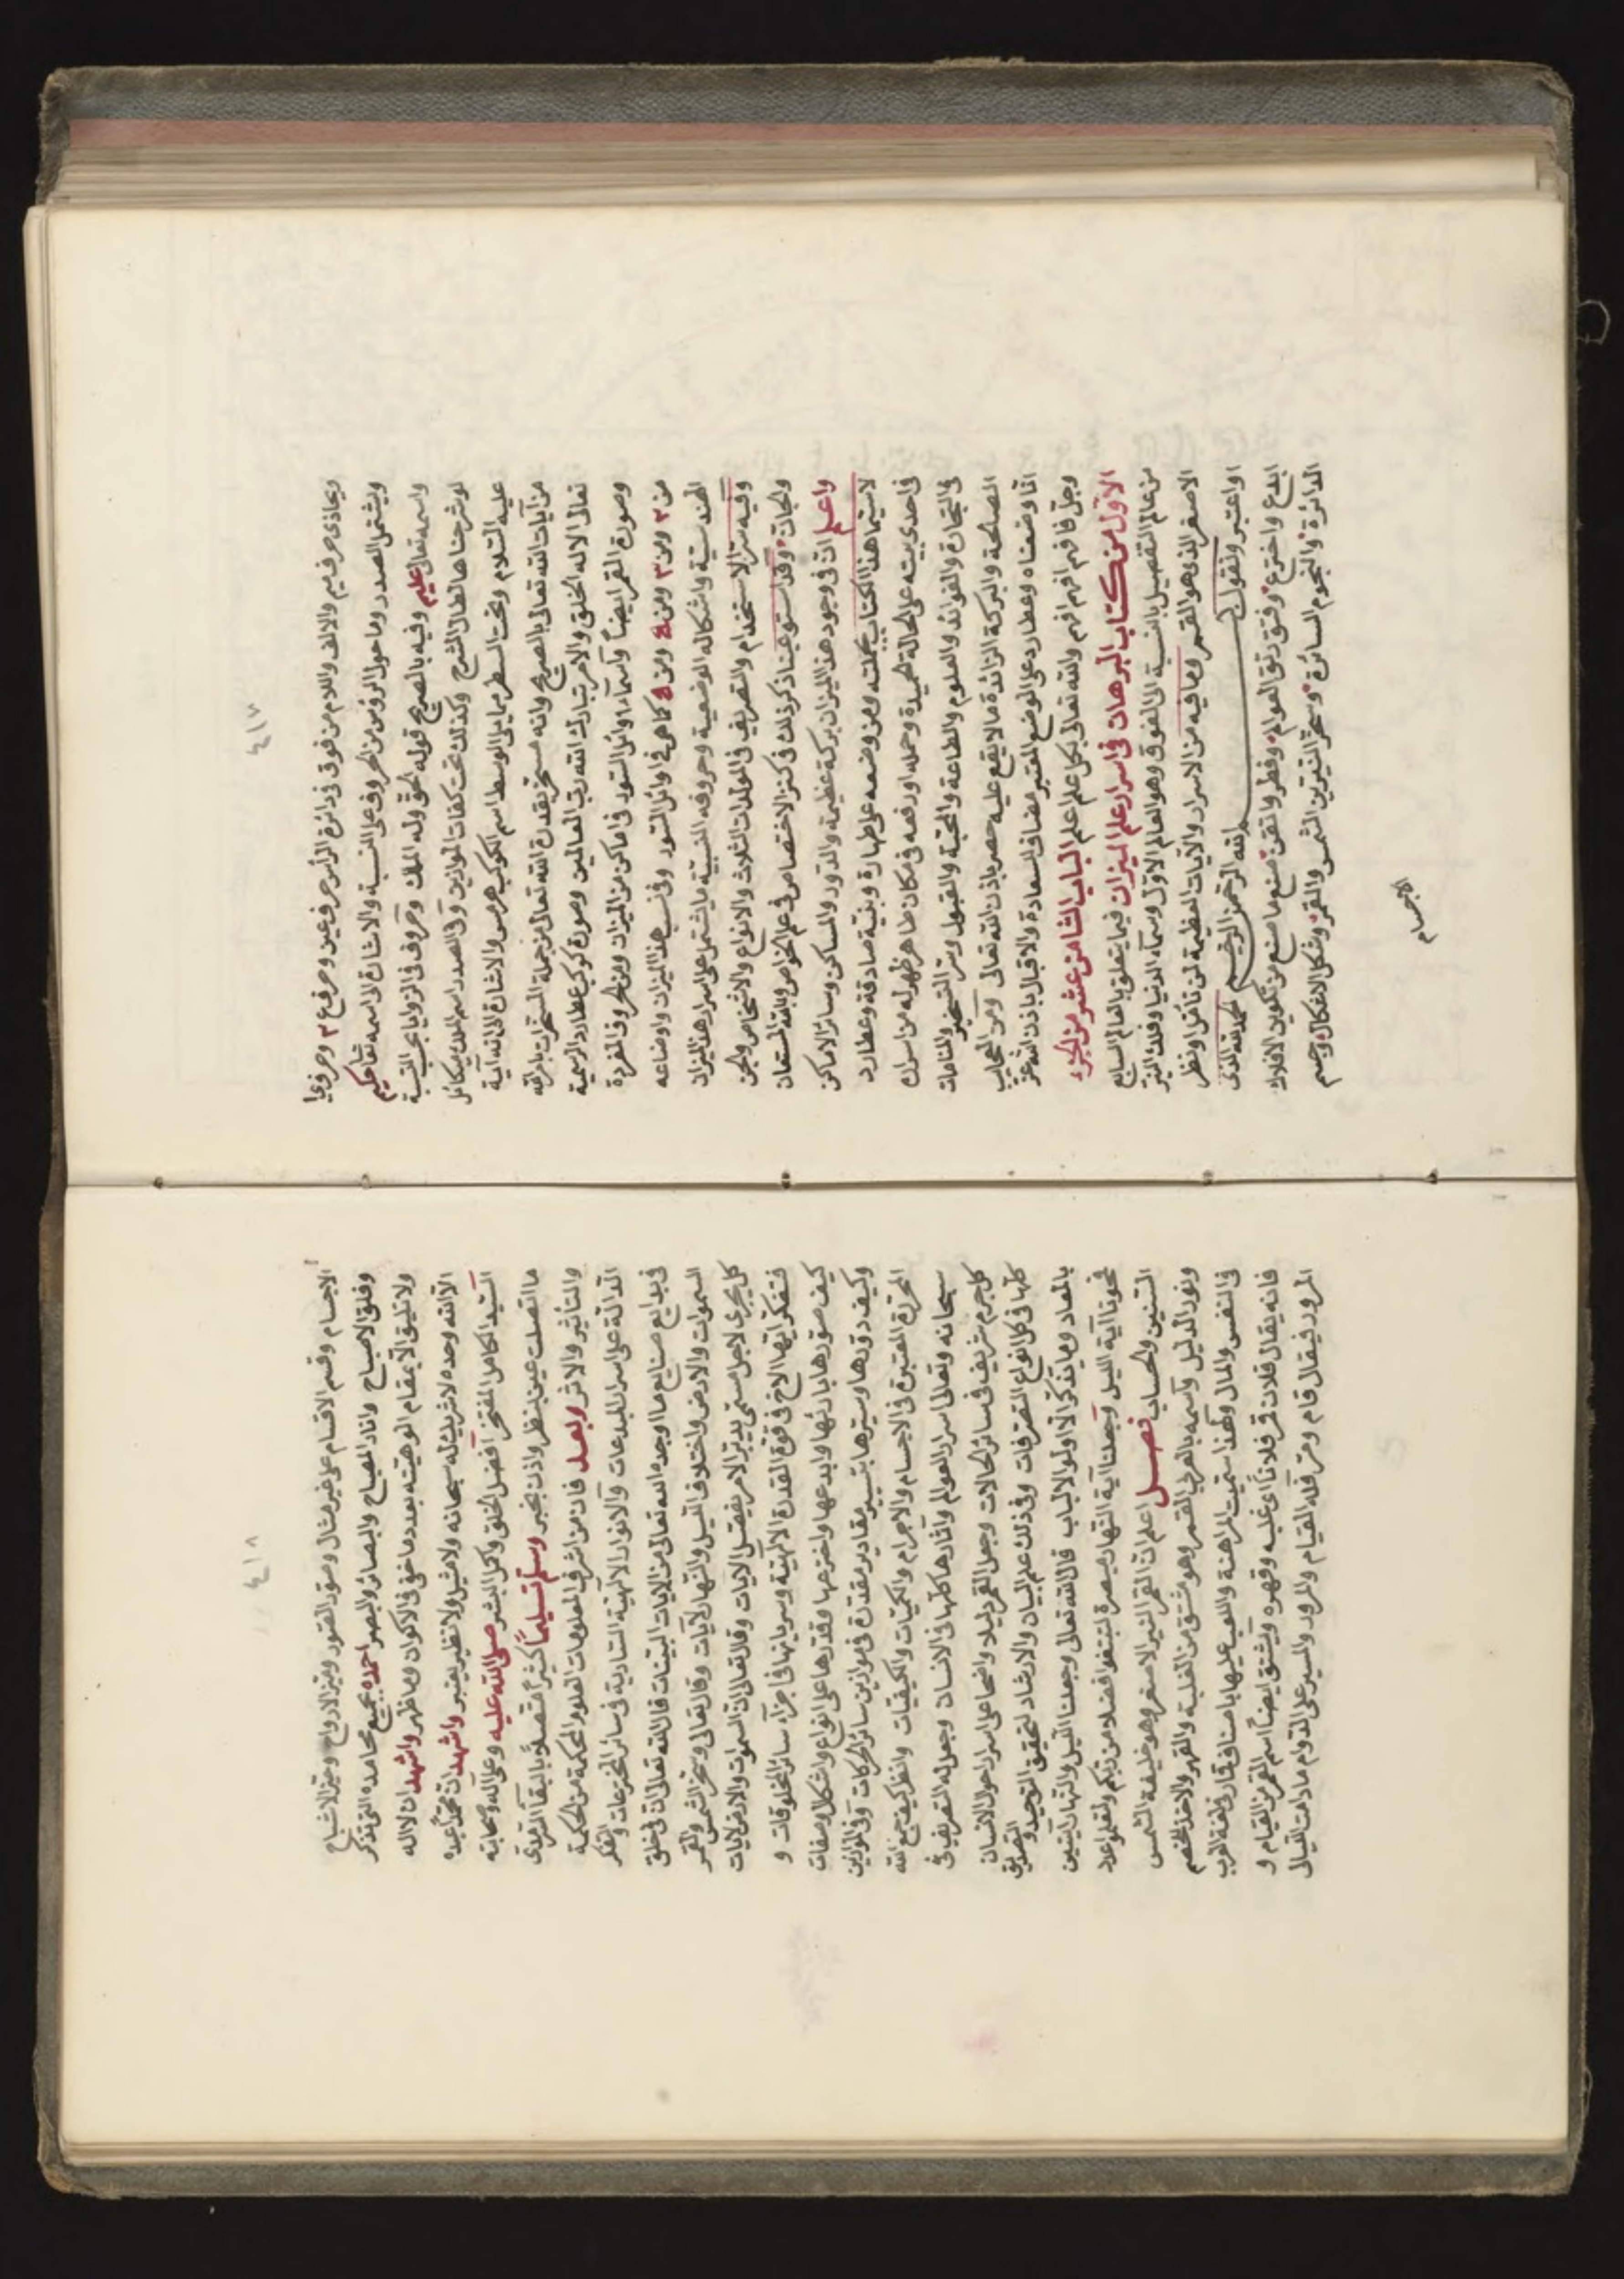 ٤١٧
ويحاذى حرف ميم والالف واللام من فوق فى دائرة الرأس حرف عين وحرف ع ٣ وحرف يا
ويشتمل الصدر وما حول الرؤس من الحروف على النسبة والاشارة الى اسمه تعا حكيم
واسمه تعالى عليم وفيه بالصريح قوله الحق وله الملك وحروف فى الزوايا بحسب النسبة
لو شرحناها لطال الشرح وكذلك تحت كفات الموازين وفى الصدر اسم الملك ميكائل
عليه السلام وتحت السطر مما يلى الوسط اسم الكوكب هرمس والاشارة الى انه آية
من آيات الله تعالى بالصريح وانه مسخر بقدرة الله تعالى من جملة المسخرات بامر الله
تعالى الا له الخلق والامر تبارك الله رب العالمين وصورة كوكب عطارد الرسمية
وصورة القمر ايضاً وأسماء اوائل السور فى اماكن من الميزان ومن الحروف المفردة
من ٢ ومن ٣ ومن ٤ ومن ٥ كما هى فى اوائل السور وفى نسب هذا الميزان واوضاعه
الهندسية واشكاله الوضعية وحروفه النسبية ما يشتمل على اسرار هذا الميزان
وفيه سر الاستخدام والتصريف فى المولدات الثلاث والانواع والاشخاص والجن
والجان وقد استوعبنا ذكر ذلك فى كنز الاختصاص فى علم الخواص وبالله المستعان
واعلم ان فى وجود هذا الميزان بركة عظيمة والدور والمساكن وسائر الاماكن
لاسيما هذا الكتاب بجملته ومن وضعه على طهارة وبنية صادقة وعطارد
فى احدى بيته على الحالة الحميدة وحمله او رفعه فى مكان طاهر ظهر له من اسراره
فى التجارة والفوائد والعلوم والطاعة والمحبة والقبول وسر التسخير والمنامات
الصالحة والبركة الزائدة ما لا يقع عليه حصر باذن الله تعالى ومن العجايب
انا وضعناه وعطارد على الوضع المعتبر مضاف السعادة والاقبال باذن الله عز
وجل فافهم افهم افهم والله تعالى بكل علم اعلم الباب الثامن عشر من الجزء
الاول من كتاب البرهان فى اسرار علم الميزان فيما يتعلق بالعالم السابع
من عالم التفصيل بالنسبة الى الفوق وهو العالم الاول وسماء الدنيا وفلك النير
الاصغر الذى هو القمر وما فيه من الاسرار والآيات العظيمة لمن تأمل ونظر
واعتبر ونقول بسم الله الرحمن الرحيم الحمد لله الذى
ابدع واخترع وفتق رتق العوالم وفطر واتقن صنع ما صنع من تكوين الافلاك
الدائرة والنجوم السائرة وسخر النيرين الشمس والقمر وشكل الاشكال وجسم
الاجسام
٤١٨
الاجسام وقسم الاقسام على غير مثال وصور الصور وميز الارواح وحيز الاشباح
وفلق الاصباح وانار المصباح والبصائر والبصر احمده بجميع محامده التى تذكر
ولا تليق الا بمقام الوهيته بعدد ما خفى فى الاكوان وما ظهر واشهد ان لا اله
الا الله وحده لا شريك له سبحانه ولا مثيل ولا نظير يعتبر واشهد ان محمداً عبده
السيد الكامل المفتخر افضل الخلق واكمل البشر صلى الله عليه وعلى آله وصحابته
ما اتصلت عين بنظر واذن بخبر وسلم تسليماً كثيراً متصلاً بالبقاء السرمدى
والتأثير والاثر وبعد فان من اشرف المعلومات العلوم المحكمة من الحكمة
الدالة على اسرار المبدعات والانوار الالهية السارية فى سائر المخترعات والفكر
فى بدايع صنايع ما اوجده الله تعالى من الآيات البينات قال الله تعالى ان فى خلق
السموات والارض واختلاف الليل والنهار لآيات وقال تعالى وسخر الشمس والقمر
كل يجرى لاجل مسمى يدبر الامر يفصل الآيات وقال تعالى ان فى السموات والارض لآيات
فتفكر ايها الاخ فى قوة القدرة الالهية وسريانها فى اجزاء سائر المخلوقات و
كيف صورها بارئها وابدعها واخترعها وقدرها على انواع واشكال وصفات
وكيف دورها وسيرها بتسيير مقادير مقدرة فى موازين سائر الحركات وفى الموازين
المحررة المعتبرة فى الاجسام والاجرام والكميات والكيفيات وانظر كيف جمع الله
سبحانه وتعالى اسرار العوالم وآثارها كلها فى الانسان وجعل له التصريف فى
كل جرم شريف فى سائر الحالات وجعل القمر دليلا واضحا على اسرار احوال الانسان
كلها فى كل انواع التصرفات وفى ذلك علم البيان والارشاد لتحقيق التوحيد والتصديق
بالمعاد وما يذكر الا اولوا الالباب قال الله تعالى وجعلنا الليل والنهار آيتين
فمحونا آية الليل وجعلنا آية النهار مبصرة لتبتغوا فضلا من ربكم ولتعلموا عدد
السنين والحساب فصل اعلم ان القمر النير الاصغر وهو خليفة الشمس
ونور الدليل وأسمه بالعربى القمر وهو مشتق من الغلبة والقهر والاخذ للخصم
فى النفس والمال ولهذا سميت المراهنة واللعب عليها باصناف قمار فى لغة العرب
فانه يقال فلان قمر فلاناً اى غلبه وقهره ويشتق ايضاً اسم القمر من القيام و
المرور فيقال قام ومر فله القيام والمرور والسير على الدوام ما دامت الليالى